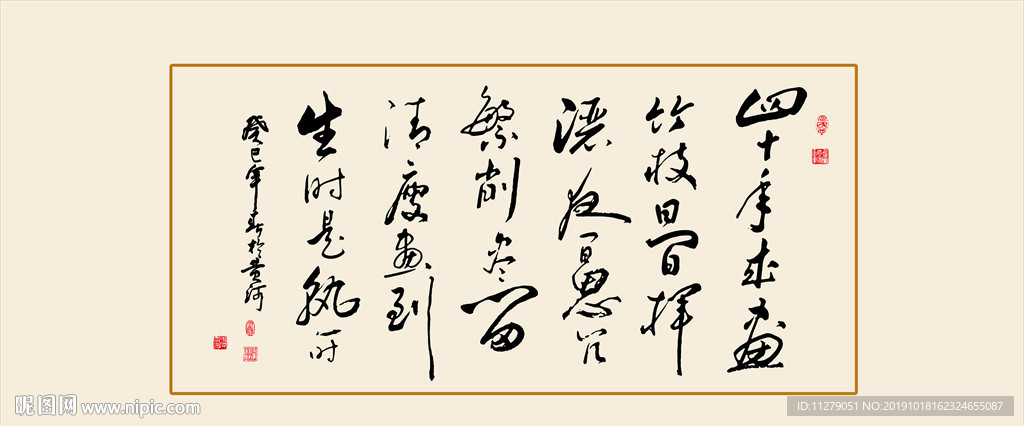 四十年来畫
竹枝日间挥
灑夜间思冗
繁削尽留
清瘦畫到
生时是熟时
癸巳年春於黄河
昵图网 www.nipic.com
ID:11279051 NO:20191018162324655087